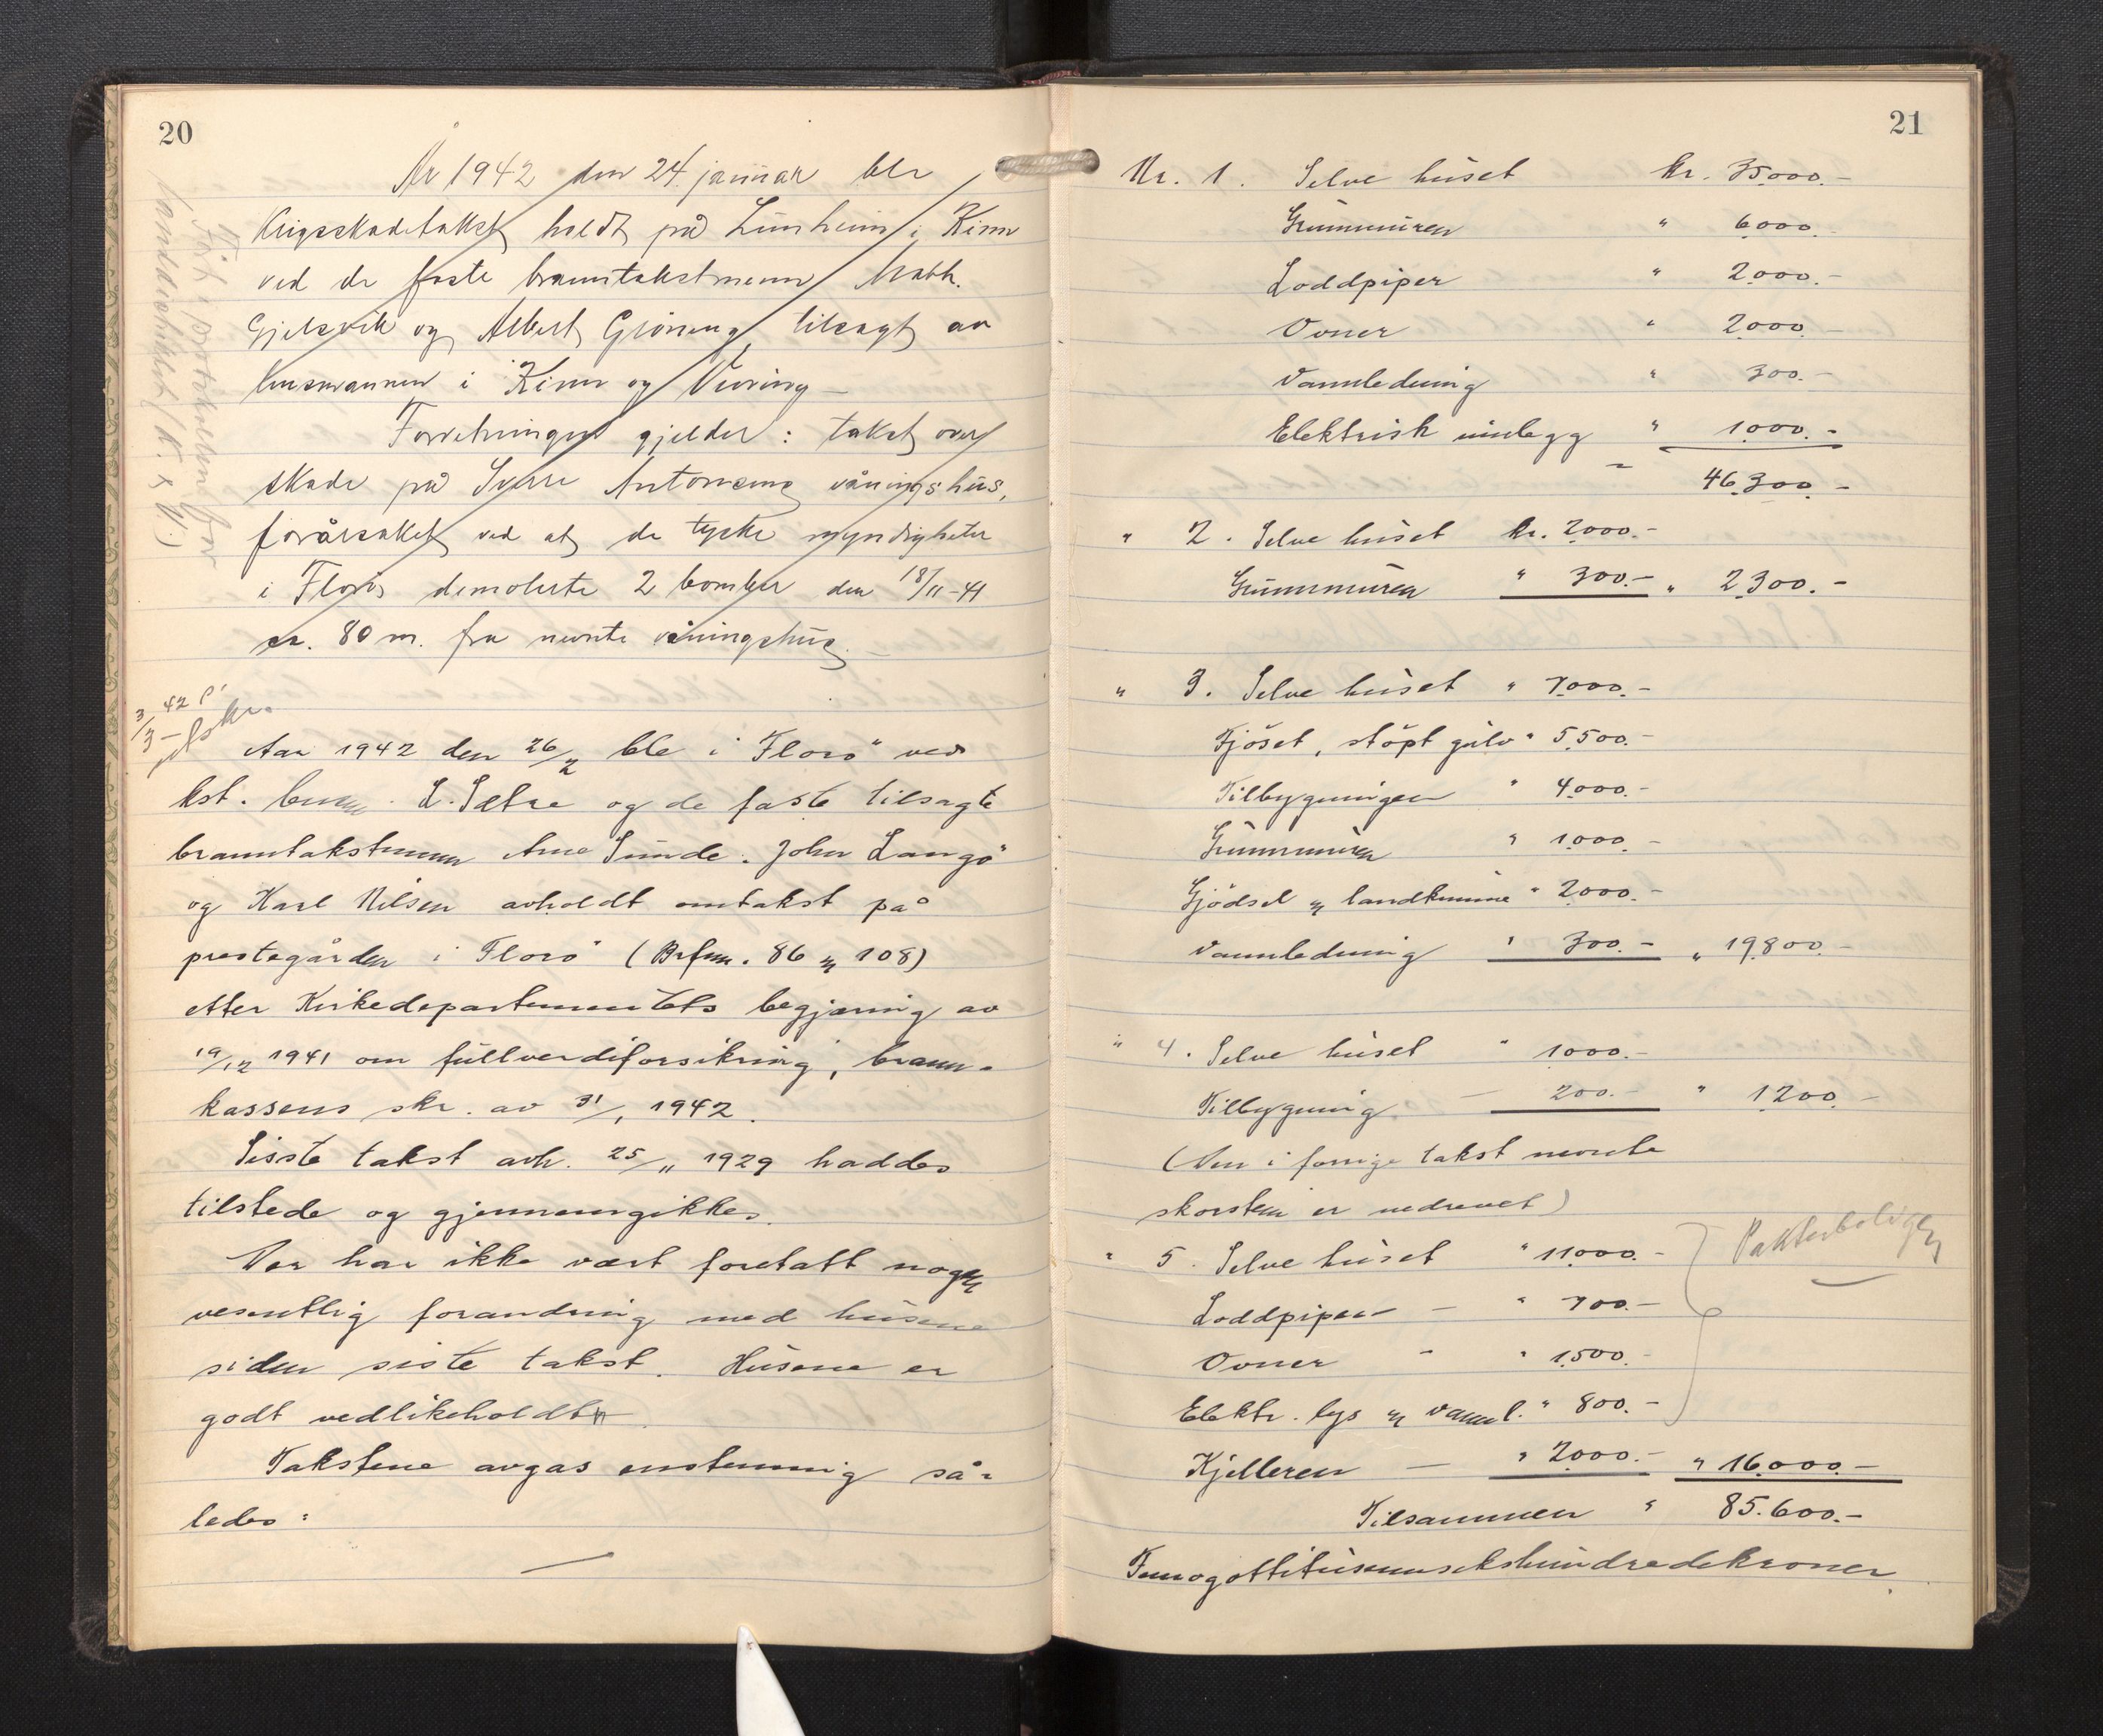 20
År 1942 den 24. januar ble
krigsskadetakst holdt på Lunheim i Kinn
ved de faste branntakstmenn Math.
Gjelsvik og Albert Gröneng tilsagt av
lensmannen i Kinn og Vevring —
Forretningen gjelder: takst over
skade på Sverre Antonsens våningshus,
forårsaket ved at de tyske myndigheter
i Florö demolerte 2 bomber den 18/11-41
ca. 80 m. fra nevnte våningshus.
Före i protokollen for
landdistriktet (K. & V.)
3/3 - 42
utskr.
Aar 1942 den 26/2 ble i Florö ved
kst. lensm. L. Sætre og de faste tilsagte
branntakstmenn Arne Sunde. John Langö
og Karl Nilsen avholdt omtakst på
prestegården i Florö (Brfnr. 86 & 108)
etter Kirkedepartementets begjæring av
19/12 1941 om fullverdiforsikring, brann-
kassens skr. av 31/1 1942.
Siste takst avh. 25/11 1929 haddes
tilstede og gjennemgikkes.
Der har ikke vært foretatt nogen
vesentlig forandring med husene
siden siste takst. Husene er
godt vedlikeholdt.
Takstene avgas enstemmig så-
ledes:
21
Nr. 1. Selve huset kr. 35.000.-
Grunnmuren " 6.000.-
Loddpiper " 2.000.-
Ovner " 2.000.-
Vannledning " 300.-
Elektrisk innlegg " 1.000.-
" 46.300.-
" 2. Selve huset kr. 2.000.-
Grunnmuren " 300.- " 2.300.-
" 3. Selve huset " 7.000.-
Fjöset, stöpt gulv " 5.500.-
Tilbygningen " 4.000.-
Grunnmuren " 1.000.-
Gjödsel & landkumme " 2.000.-
Vannledning " 300.- " 19.800.-
" 4. Selve huset " 1.000.-
Tilbygning — 200.- " 1.200.-
(Den i forrige takst nevnte
skorsten er nedrevet)
" 5. Selve huset " 11.000.-
Pakterboligen
Loddpiper — " 700.-
Ovner - " 1.500.-
Elektr. lys & vannl. " 800.-
Kjelleren — " 2.000.- " 16.000.-
Tilsammen " 85.600.-
Femogottitusensekshundredekroner.